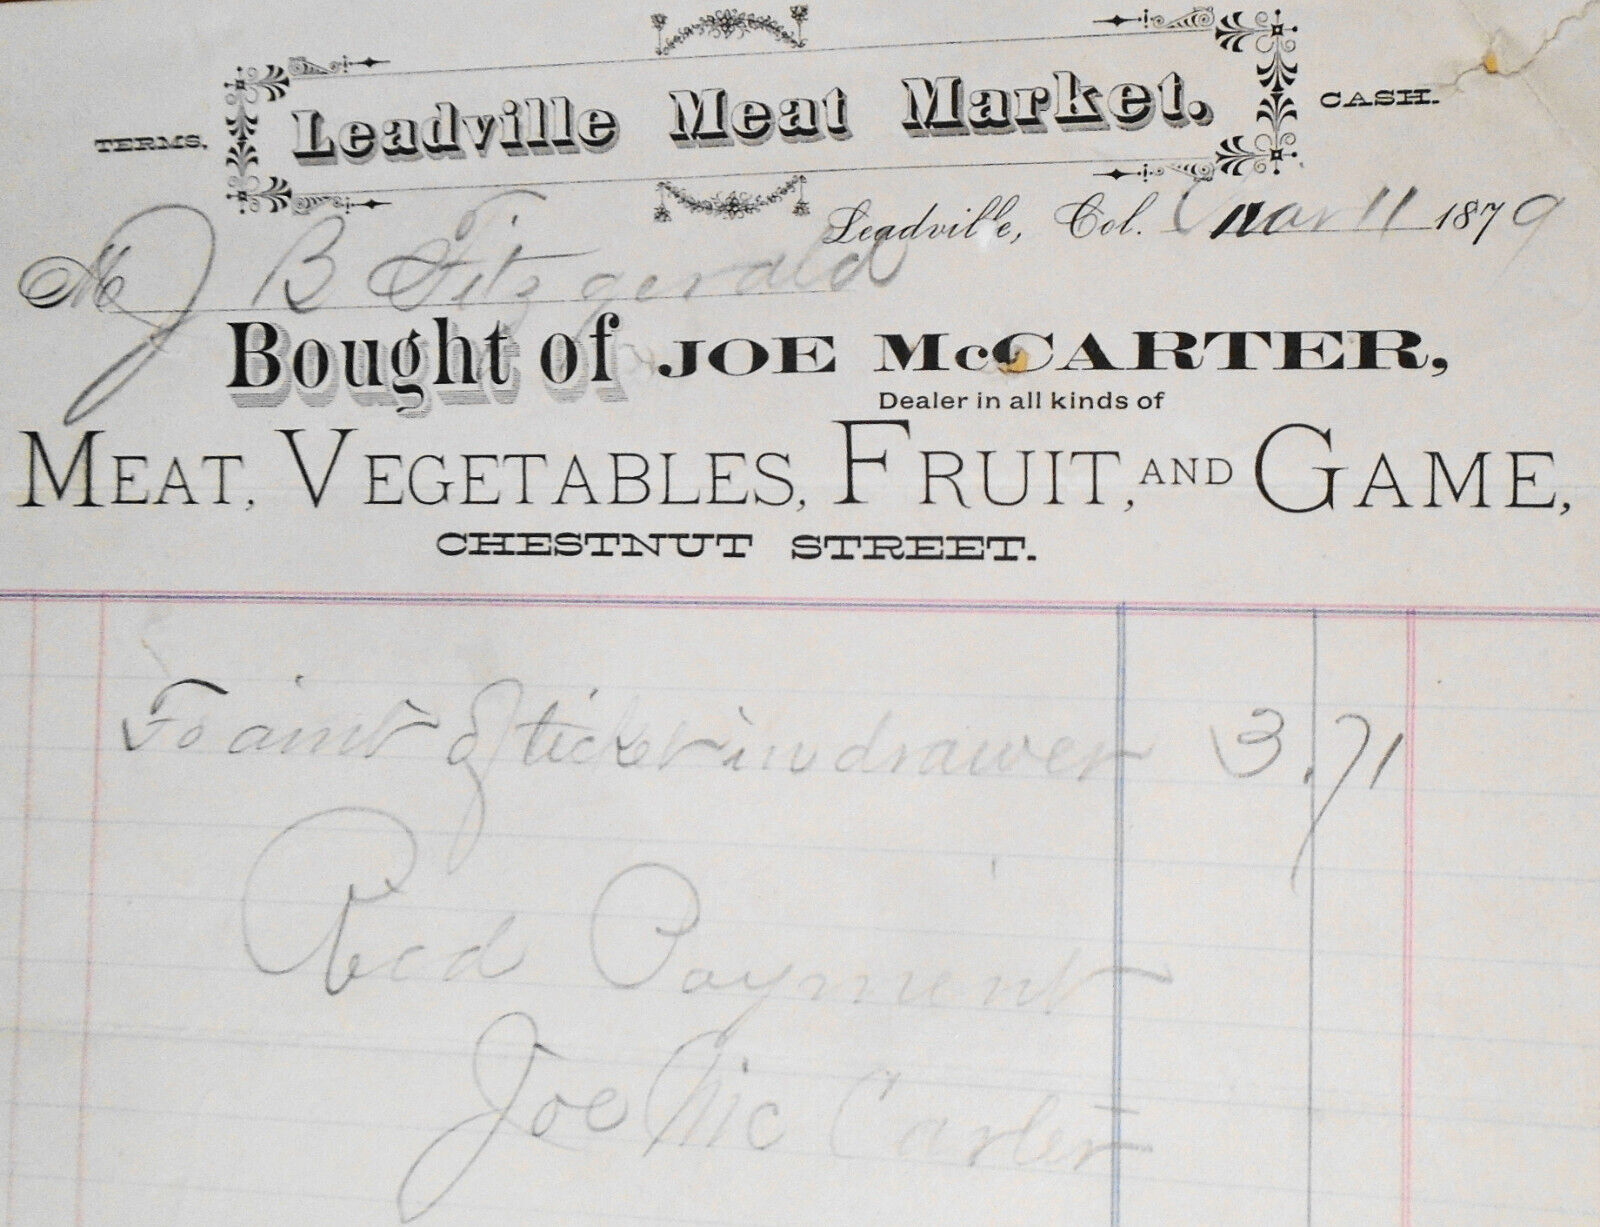 TERMS, Leadville Meat Market. CASH.
Leadville, Col. Mar 11 1879
M J B Fitzgerald
Bought of JOE McCARTER,
Dealer in all kinds of
MEAT, VEGETABLES, FRUIT, AND GAME,
CHESTNUT STREET.
To amt of ticket in drawer 3.71
Recd Payment
Joe McCarter